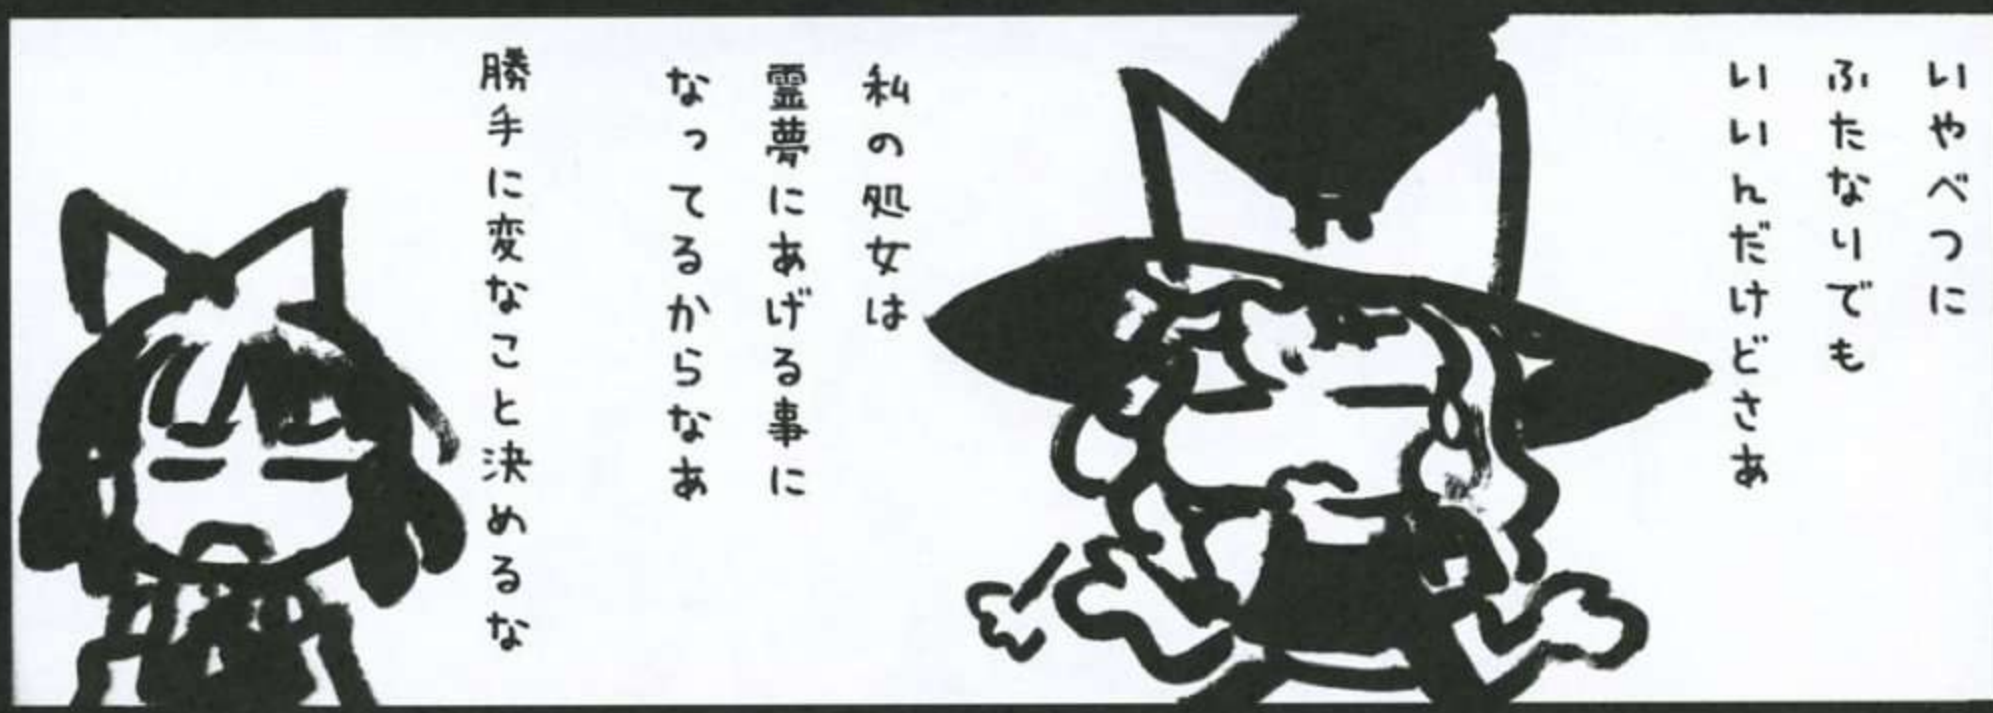 いやべつに
ふたなりでも
いいんだけどさぁ
私の処女は
霊夢にあげる事に
なってるからなぁ
勝手に変なこと決めるな